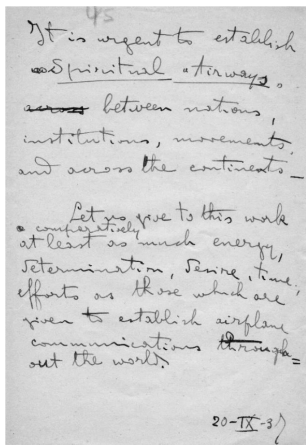 45
It is urgent to establish
"Spiritual Airways"
across between nations,
institutions, movements,
and across the continents -
Let us give to this work
comparatively
at least as much energy,
determination, desire, time,
efforts as those which are
given to establish airplane
communications through=
out the world.
20-IX-37